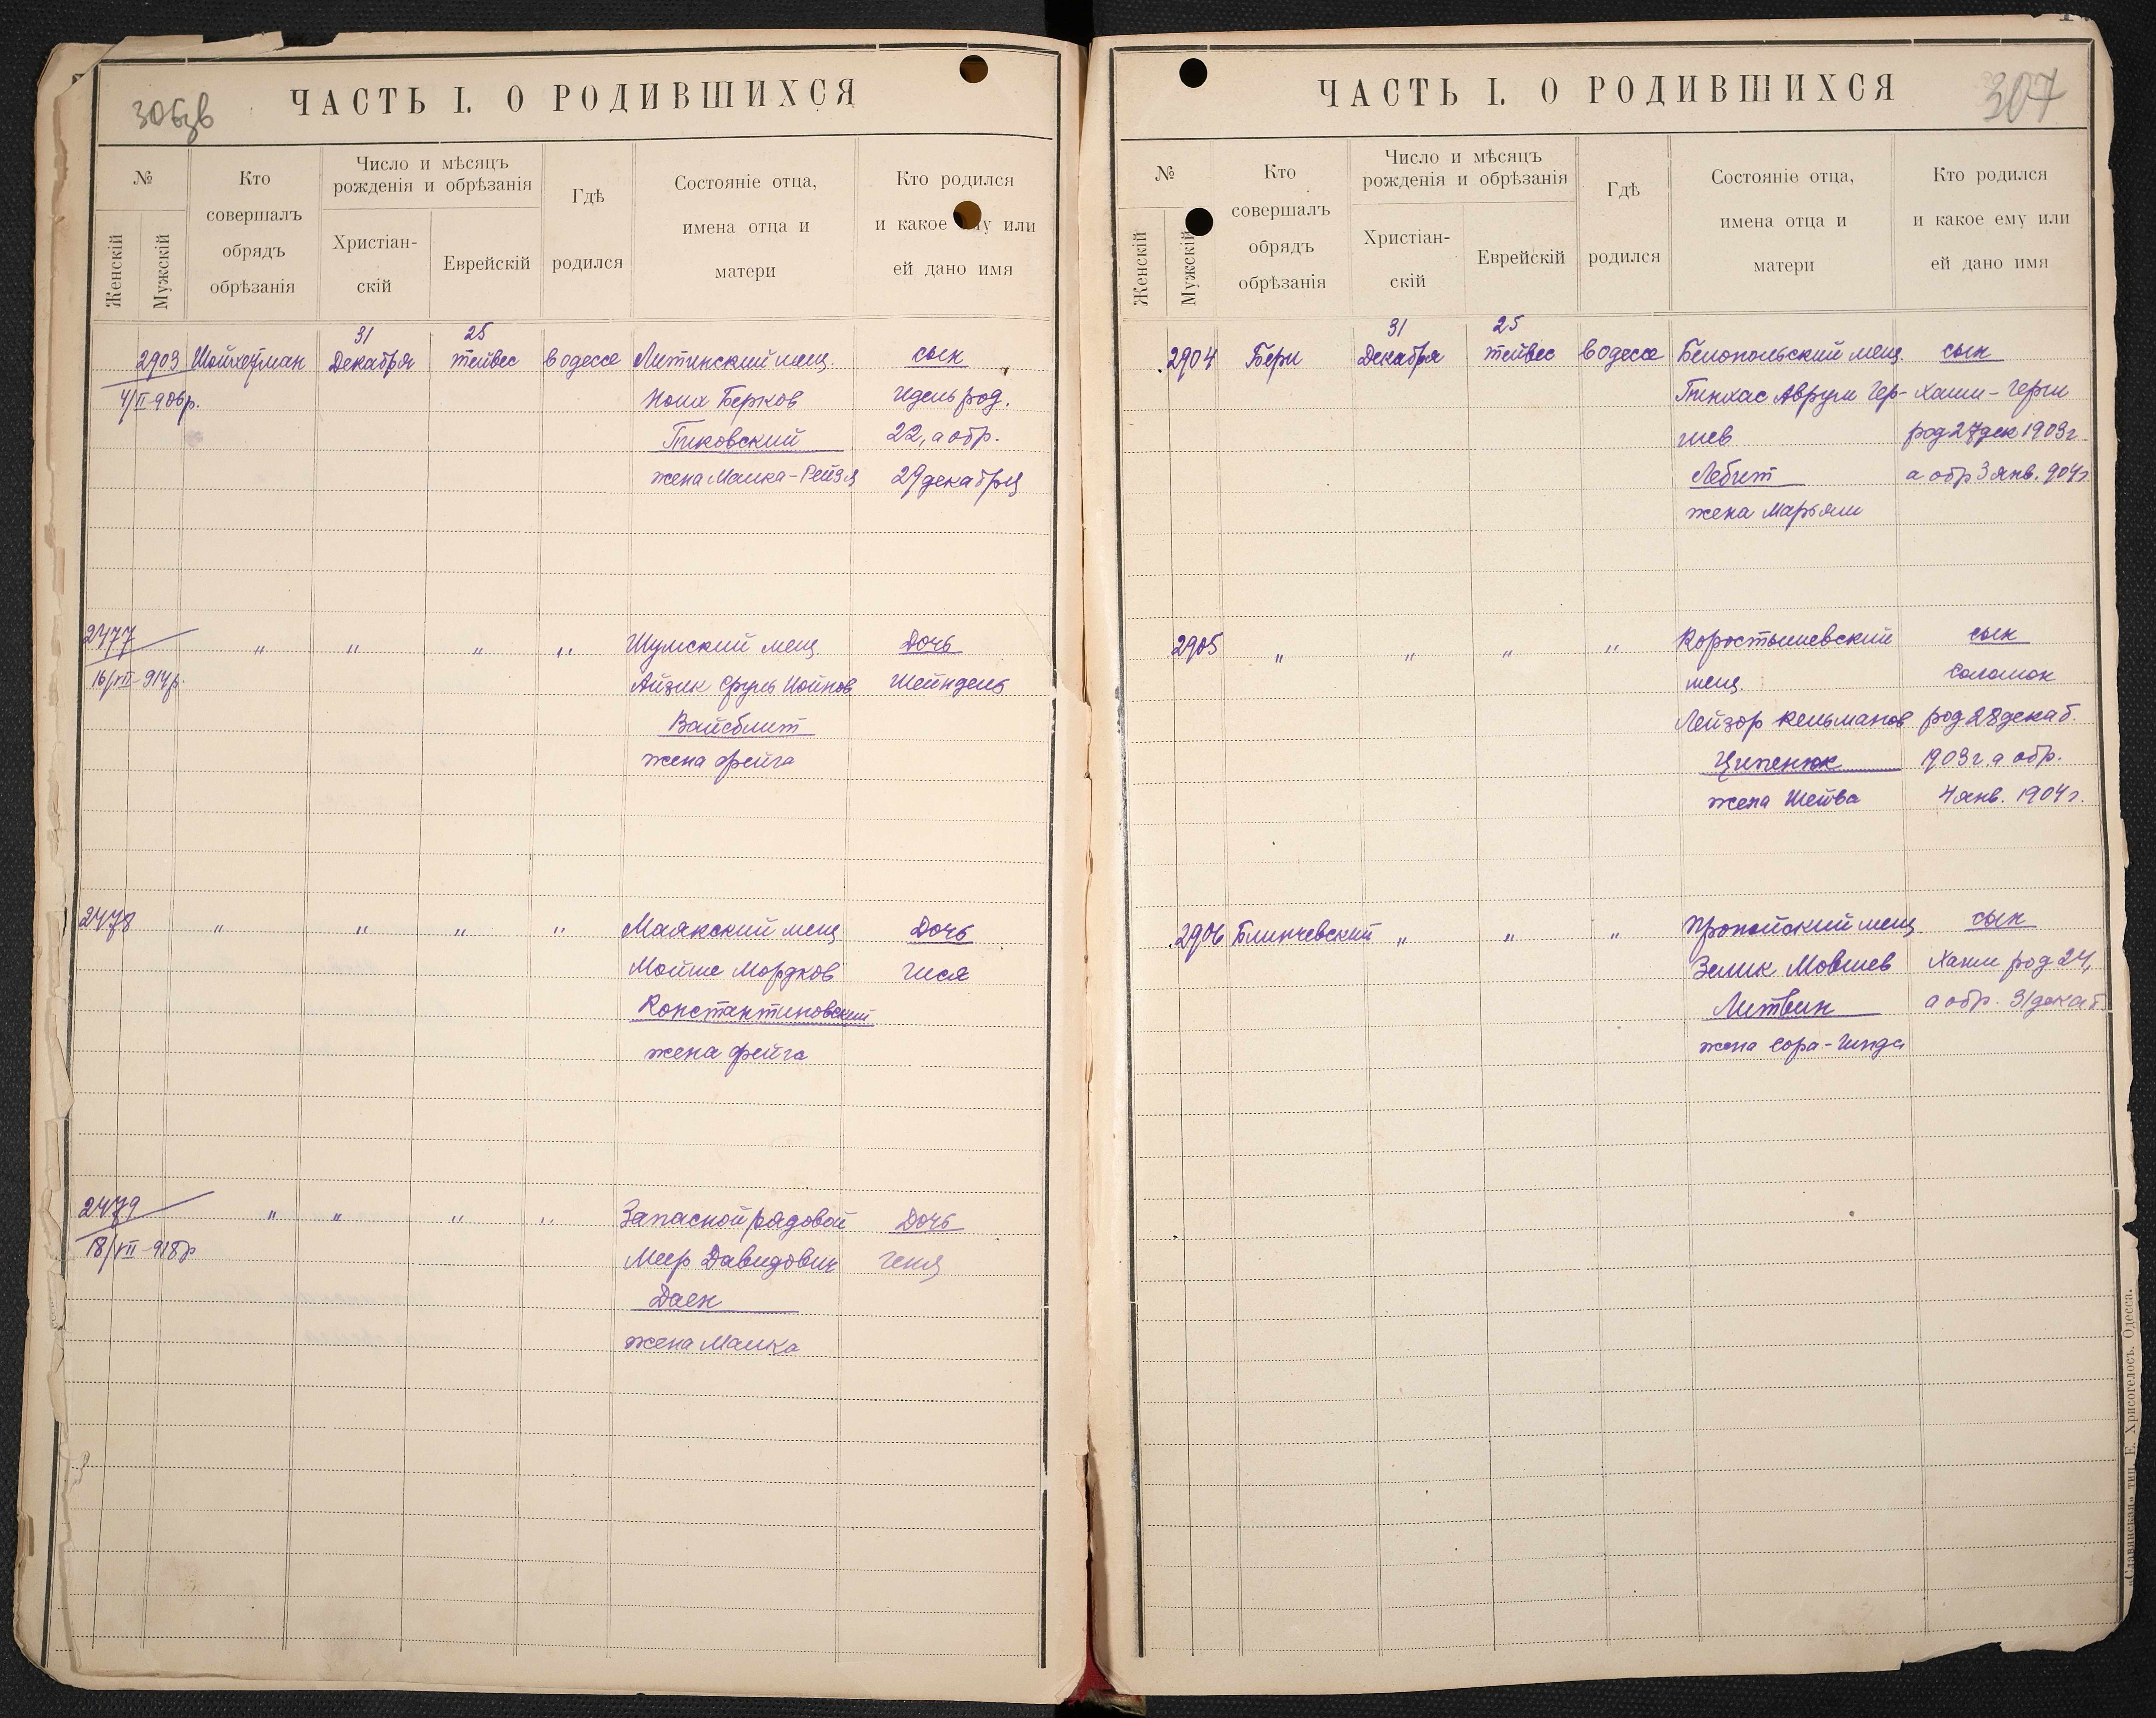 306зв
ЧАСТЬ I. О РОДИВШИХСЯ
№
Женскій
Мужскій
Кто
совершалъ
обрядъ
обрѣзанія
Число и мѣсяцъ
рожденія и обрѣзанія
Христіан-
скій
Еврейскій
Гдѣ
родился
Состояніе отца,
имена отца и
матери
Кто родился
и какое ему или
ей дано имя
31 25
2903 Шойхетман Декабря тейвес в одессе Литинский мещ. сын
4/II-906р. Ноих Берков Идель род.
Пиковский 22, а обр.
жена Малка-Рейзя 29 декабря
2477 " " " " Шумский мещ. Дочь
16/VII-914р. Айзик Сруль Нойнов Шейндель
Вайсблит
жена Фейга
2478 " " " " Маякский мещ Дочь
Мойше Мордков Гися
Константиновский
жена Фейга
2479 " " " " Запасной рядовой Дочь
18/VII-918р Меер Давидович Геня
Даен
жена Малка
307
ЧАСТЬ I. О РОДИВШИХСЯ
№
Женскій
Мужскій
Кто
совершалъ
обрядъ
обрѣзанія
Число и мѣсяцъ
рожденія и обрѣзанія
Христіан-
скій
Еврейскій
Гдѣ
родился
Состояніе отца,
имена отца и
матери
Кто родился
и какое ему или
ей дано имя
31 25
2904 Бери Декабря тейвес в одессе Белопольский мещ. сын
Пинхас Аврум Гер- Хаим-Герш
шев род 27 дек 1903г
Лебит а обр 3 янв. 904г.
жена Марьям
2905 " " " " Коростышевский сын
мещ. Соломон
Лейзор Кельманов род 28 декаб.
Ципенюк 1903г. а обр.
жена Шейва 4 янв. 1904г.
2906 Блинчевский " " " Пропойский мещ. сын
Зелик Мовшев Хаим род 24,
Литвин а обр. 31 декаб.
жена Сора-Гинда
«Славянская» тип. Е. Хрисогелосъ. Одесса.